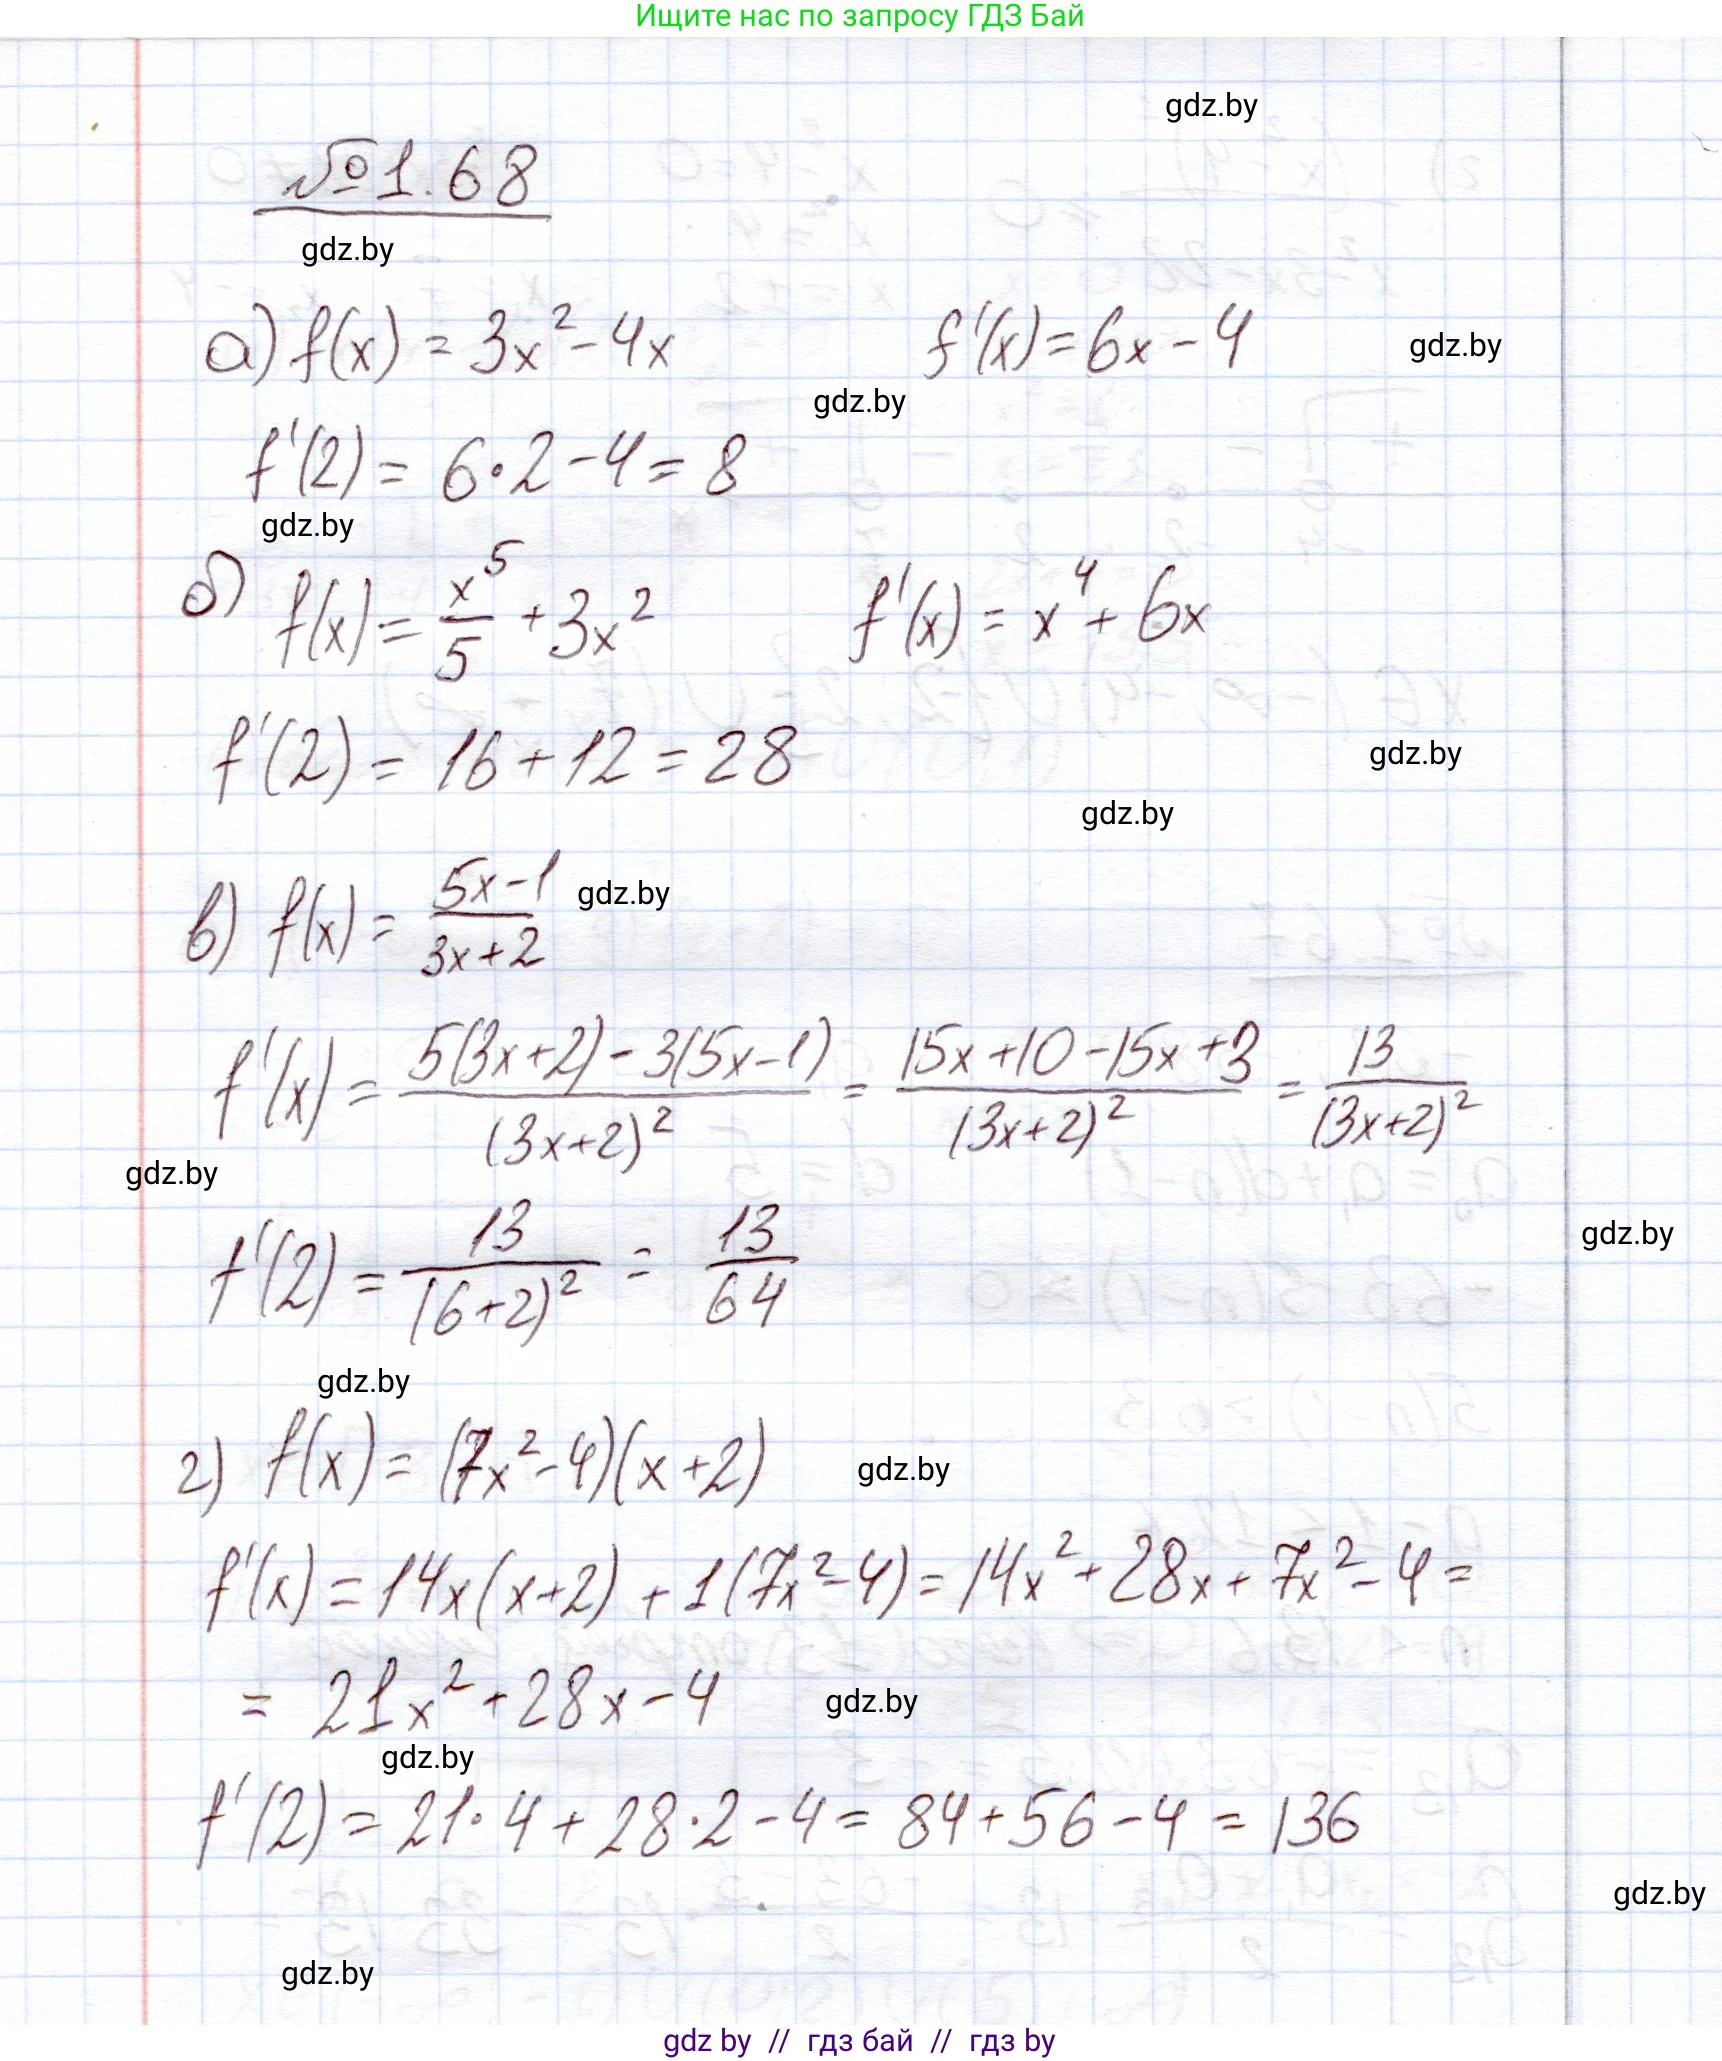 Ищите нас по запросу ГДЗ Бай
gdz.by
№1.68
gdz.by
а) f(x) = 3x² - 4x f'(x) = 6x - 4 gdz.by
gdz.by
f'(2) = 6·2 - 4 = 8
gdz.by
б) f(x) = x⁵/5 + 3x² f'(x) = x⁴ + 6x
f'(2) = 16 + 12 = 28 gdz.by
gdz.by
в) f(x) = (5x-1)/(3x+2) gdz.by
f'(x) = (5(3x+2) - 3(5x-1))/(3x+2)² = (15x+10-15x+3)/(3x+2)² = 13/(3x+2)²
gdz.by
f'(2) = 13/(6+2)² = 13/64 gdz.by
gdz.by
г) f(x) = (7x²-4)(x+2) gdz.by
f'(x) = 14x(x+2) + 1(7x²-4) = 14x² + 28x + 7x² - 4 =
= 21x² + 28x - 4 gdz.by
gdz.by
f'(2) = 21·4 + 28·2 - 4 = 84 + 56 - 4 = 136
gdz.by
gdz.by
gdz by // гдз бай // гдз by